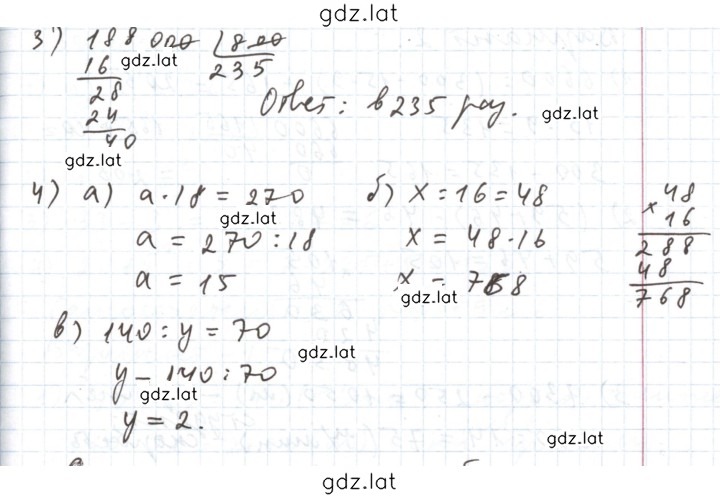 gdz.lat
3) 188 000 | 800
16 gdz.lat 235
28
24 Ответ: в 235 раз. gdz.lat
40
gdz.lat
4) а) a · 18 = 270 б) x : 16 = 48 48
gdz.lat × 16
a = 270 : 18 x = 48 · 16 288
a = 15 x = 768 48
gdz.lat 768
в) 140 : y = 70
gdz.lat
y – 140 : 70
gdz.lat
y = 2.
gdz.lat
gdz.lat